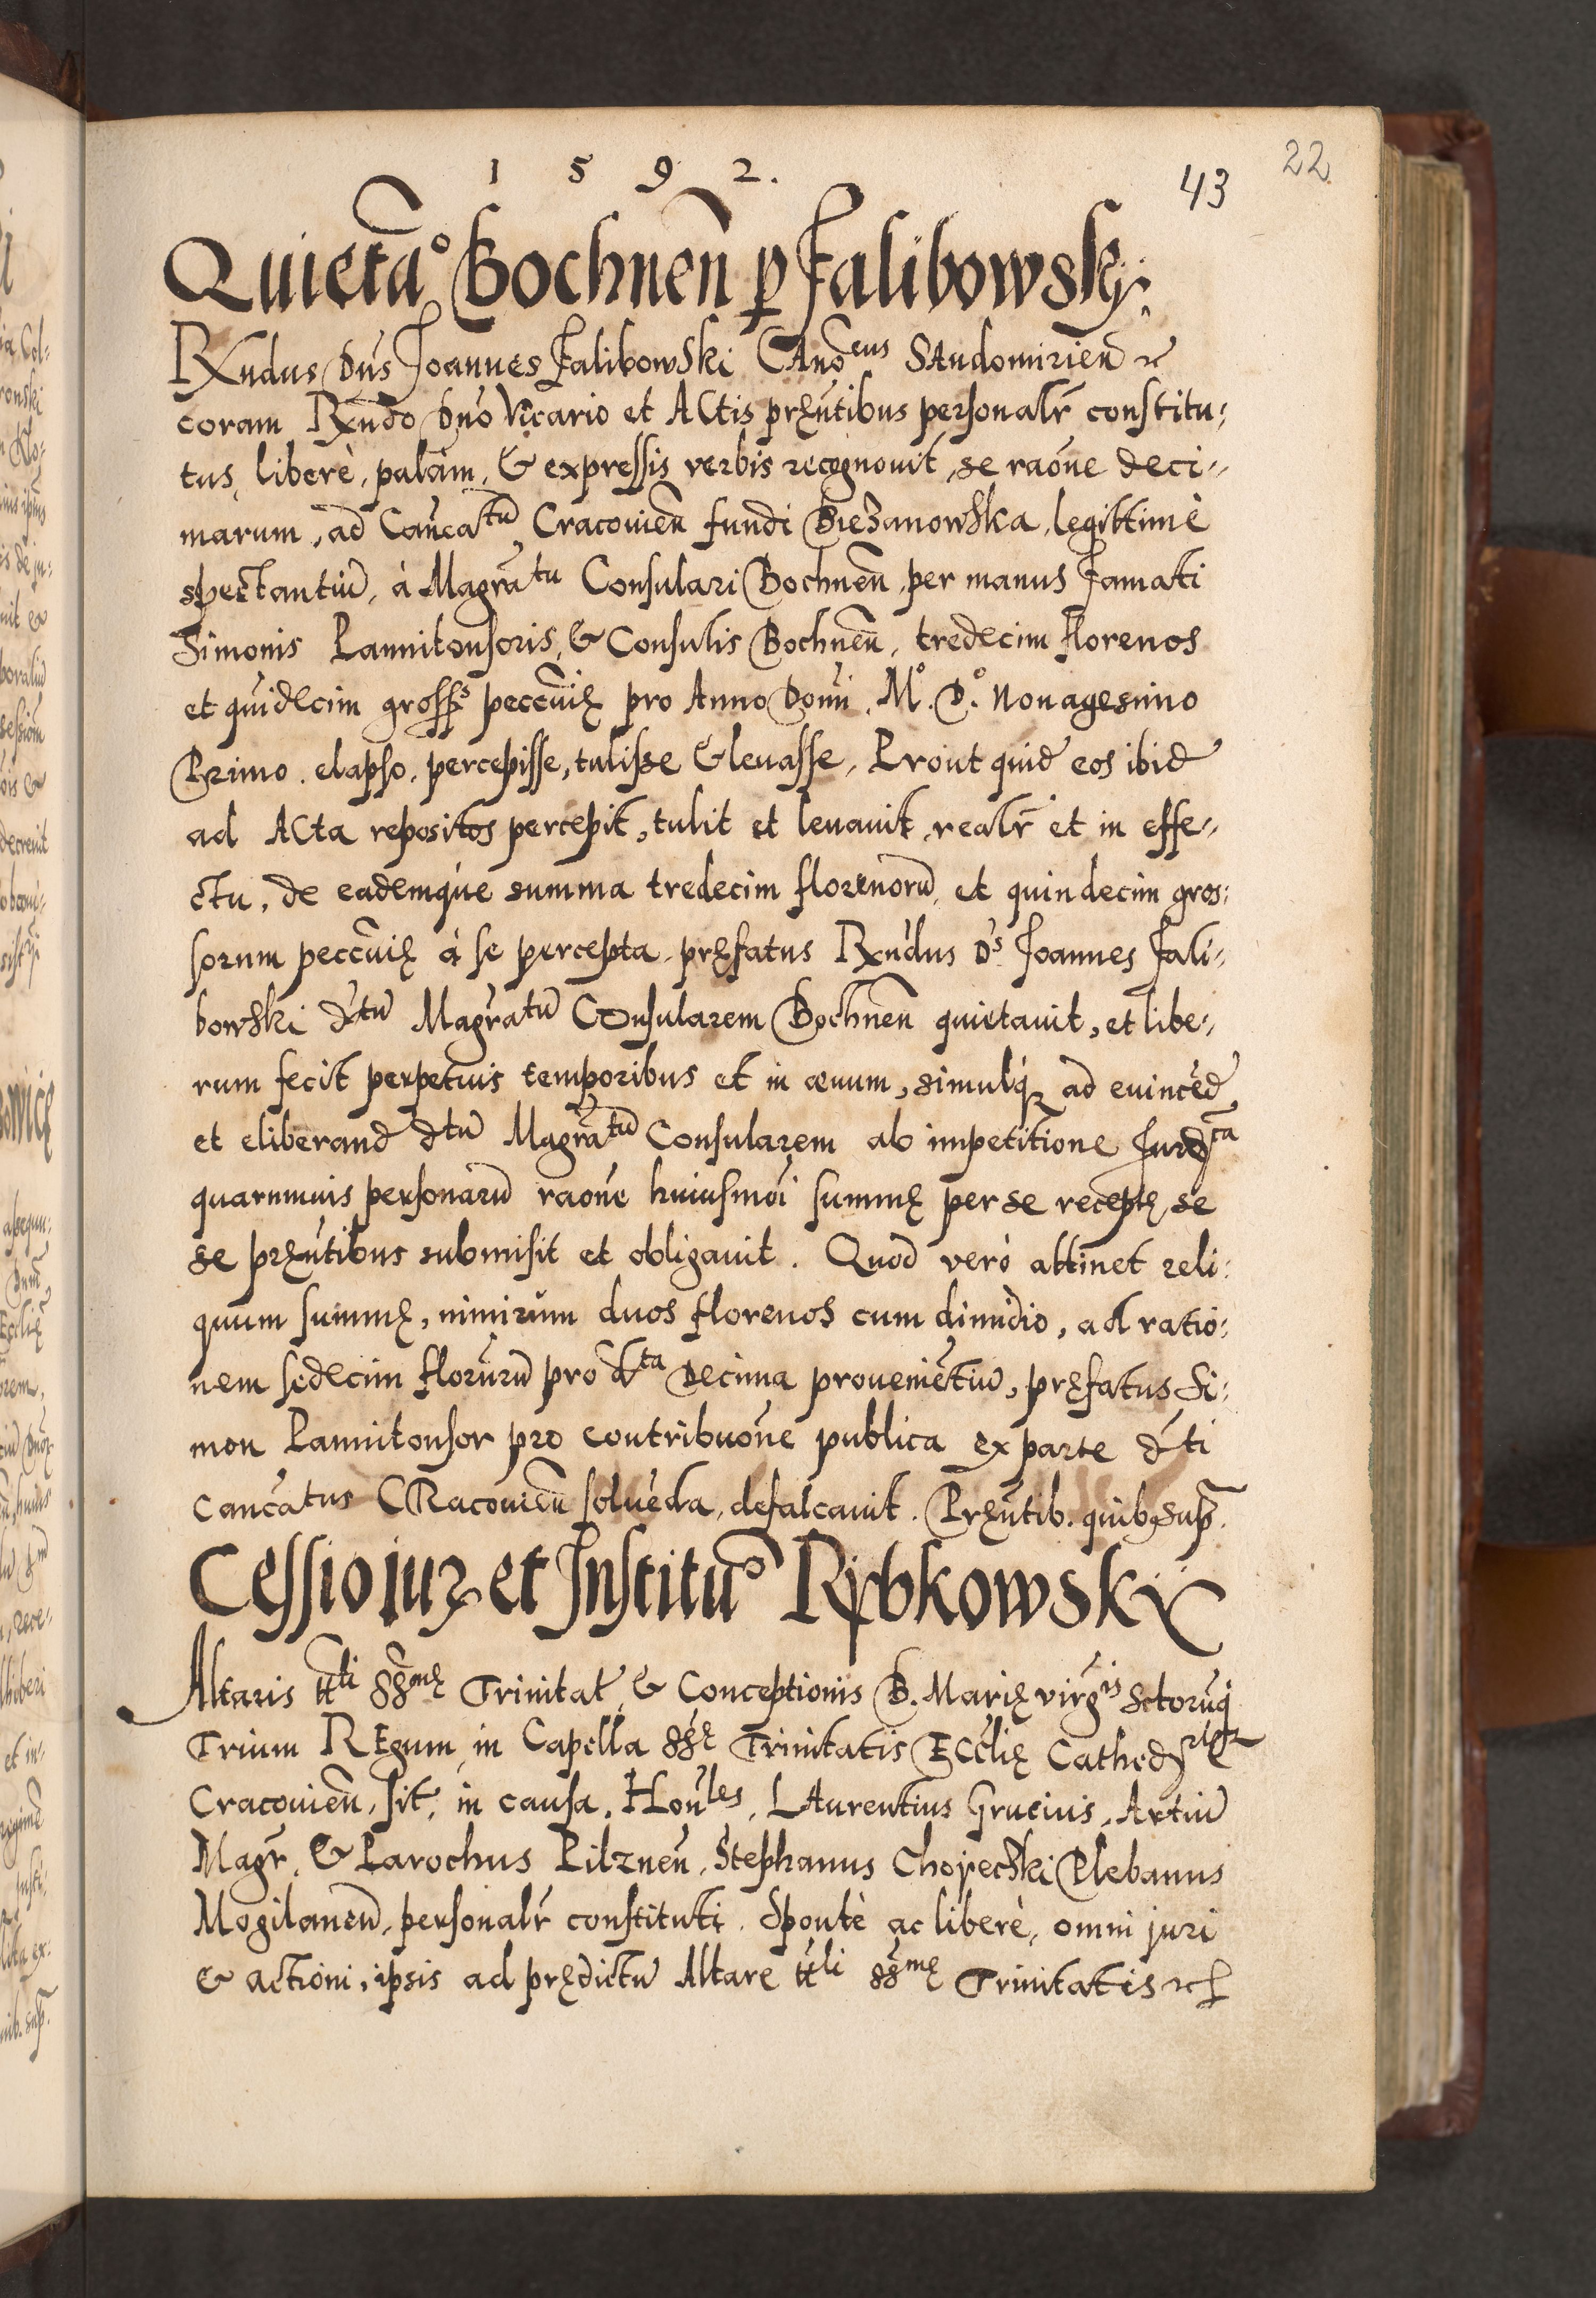 1592.
43
22
Quietãᵒ Bochneñ ꝑ Falibowsky.
RXndus Dñs Joannes Falibowski CAnõcus SAndomirieñ ꝛc
coram Rxñdo Dño Vicario et ACtis pręñtibus personalr̃ constitu:
tus, liberè, palàm, & expressis verbis recognouit, se raõne deci-
marum, ad Cañcatũ Cracouieñ fundi BieZanowSka, legittimè
spectantiũ, à Magrãtu Consulari Bochneñ, per manus Famati
Simonis Pannitonsoris, & Consulis Bochneñ, tredecim Florenos
et quĩdecim gross pecc̃uię pro Anno Doñi, Mº. Dº. Nonagesimo
Primo. elapso, percepisse, tulisse & leuasse, Prout quid̃ eos ibid̃
ad ACta repositos percepit, tulit et leuauit, realr̃ et in effe-
ctu, de eademque summa tredecim florenorũ, et quindecim gros:
sorum pecc̃uię à se percepta, pręfatus Rxñdus Ds Joannes Fali-
bowSki d̃tũ Magrãtũ COnsularem Bochneñ quietauit, et libe-
rum fecit perpetuis temporibus et in æuum, simulq; ad euincẽd̃,
et eliberand̃ d̃tũ Magrãtũ Consularem ab impetitione Jurd̃ca
quarumuis personarũ raõne huiusmõi summę per se receptę, se
se pręñtibus submisit et obligauit. Quod verò attinet reli:
quum summę, nimirùm duos florenos cum dimidio, ad ratio:
nem sedecim florũrũ pro d̃ta Decima proueniẽtiũ, pręfatus Si:
mon Pannitonsor pro contribuõne publica ex parte d̃ti
cancãtus CRacouieñ soluẽda, defalcauit. Pręñtib. quib, sup̃.
Cessio jur et Institũº Rÿbkowsky
Altaris tt̃li SSmę Trinitat̃, & Conceptionis B. Marię virgis Sctorũq;
Trium REgum, in Capella SSę Trinitatis ECclię Cathed̃
Cracouieñ, sit, in causa, Hoñles, LAurentius Grucius, Artiũ
Magr̃, & Parochus Pilzneñ, Stephanus ChojecSki Plebanus
Mogilaneñ, personalr̃ constituti. Spontè ac liberè, omni juri
& actioni, ipsis ad prędictũ Altare tt̃li SSmę Trinitatis ꝛc